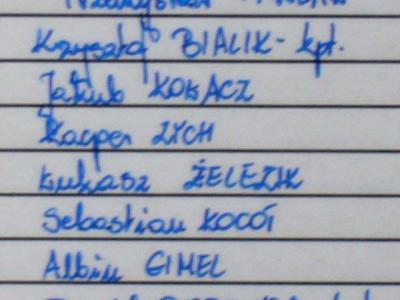 Krzysztof BIALIK - kpt.
Jakub KOŁACZ
Kacper ZYCH
Łukasz ŻELEZIK
Sebastian KOCÓŁ
Albin GIMEL